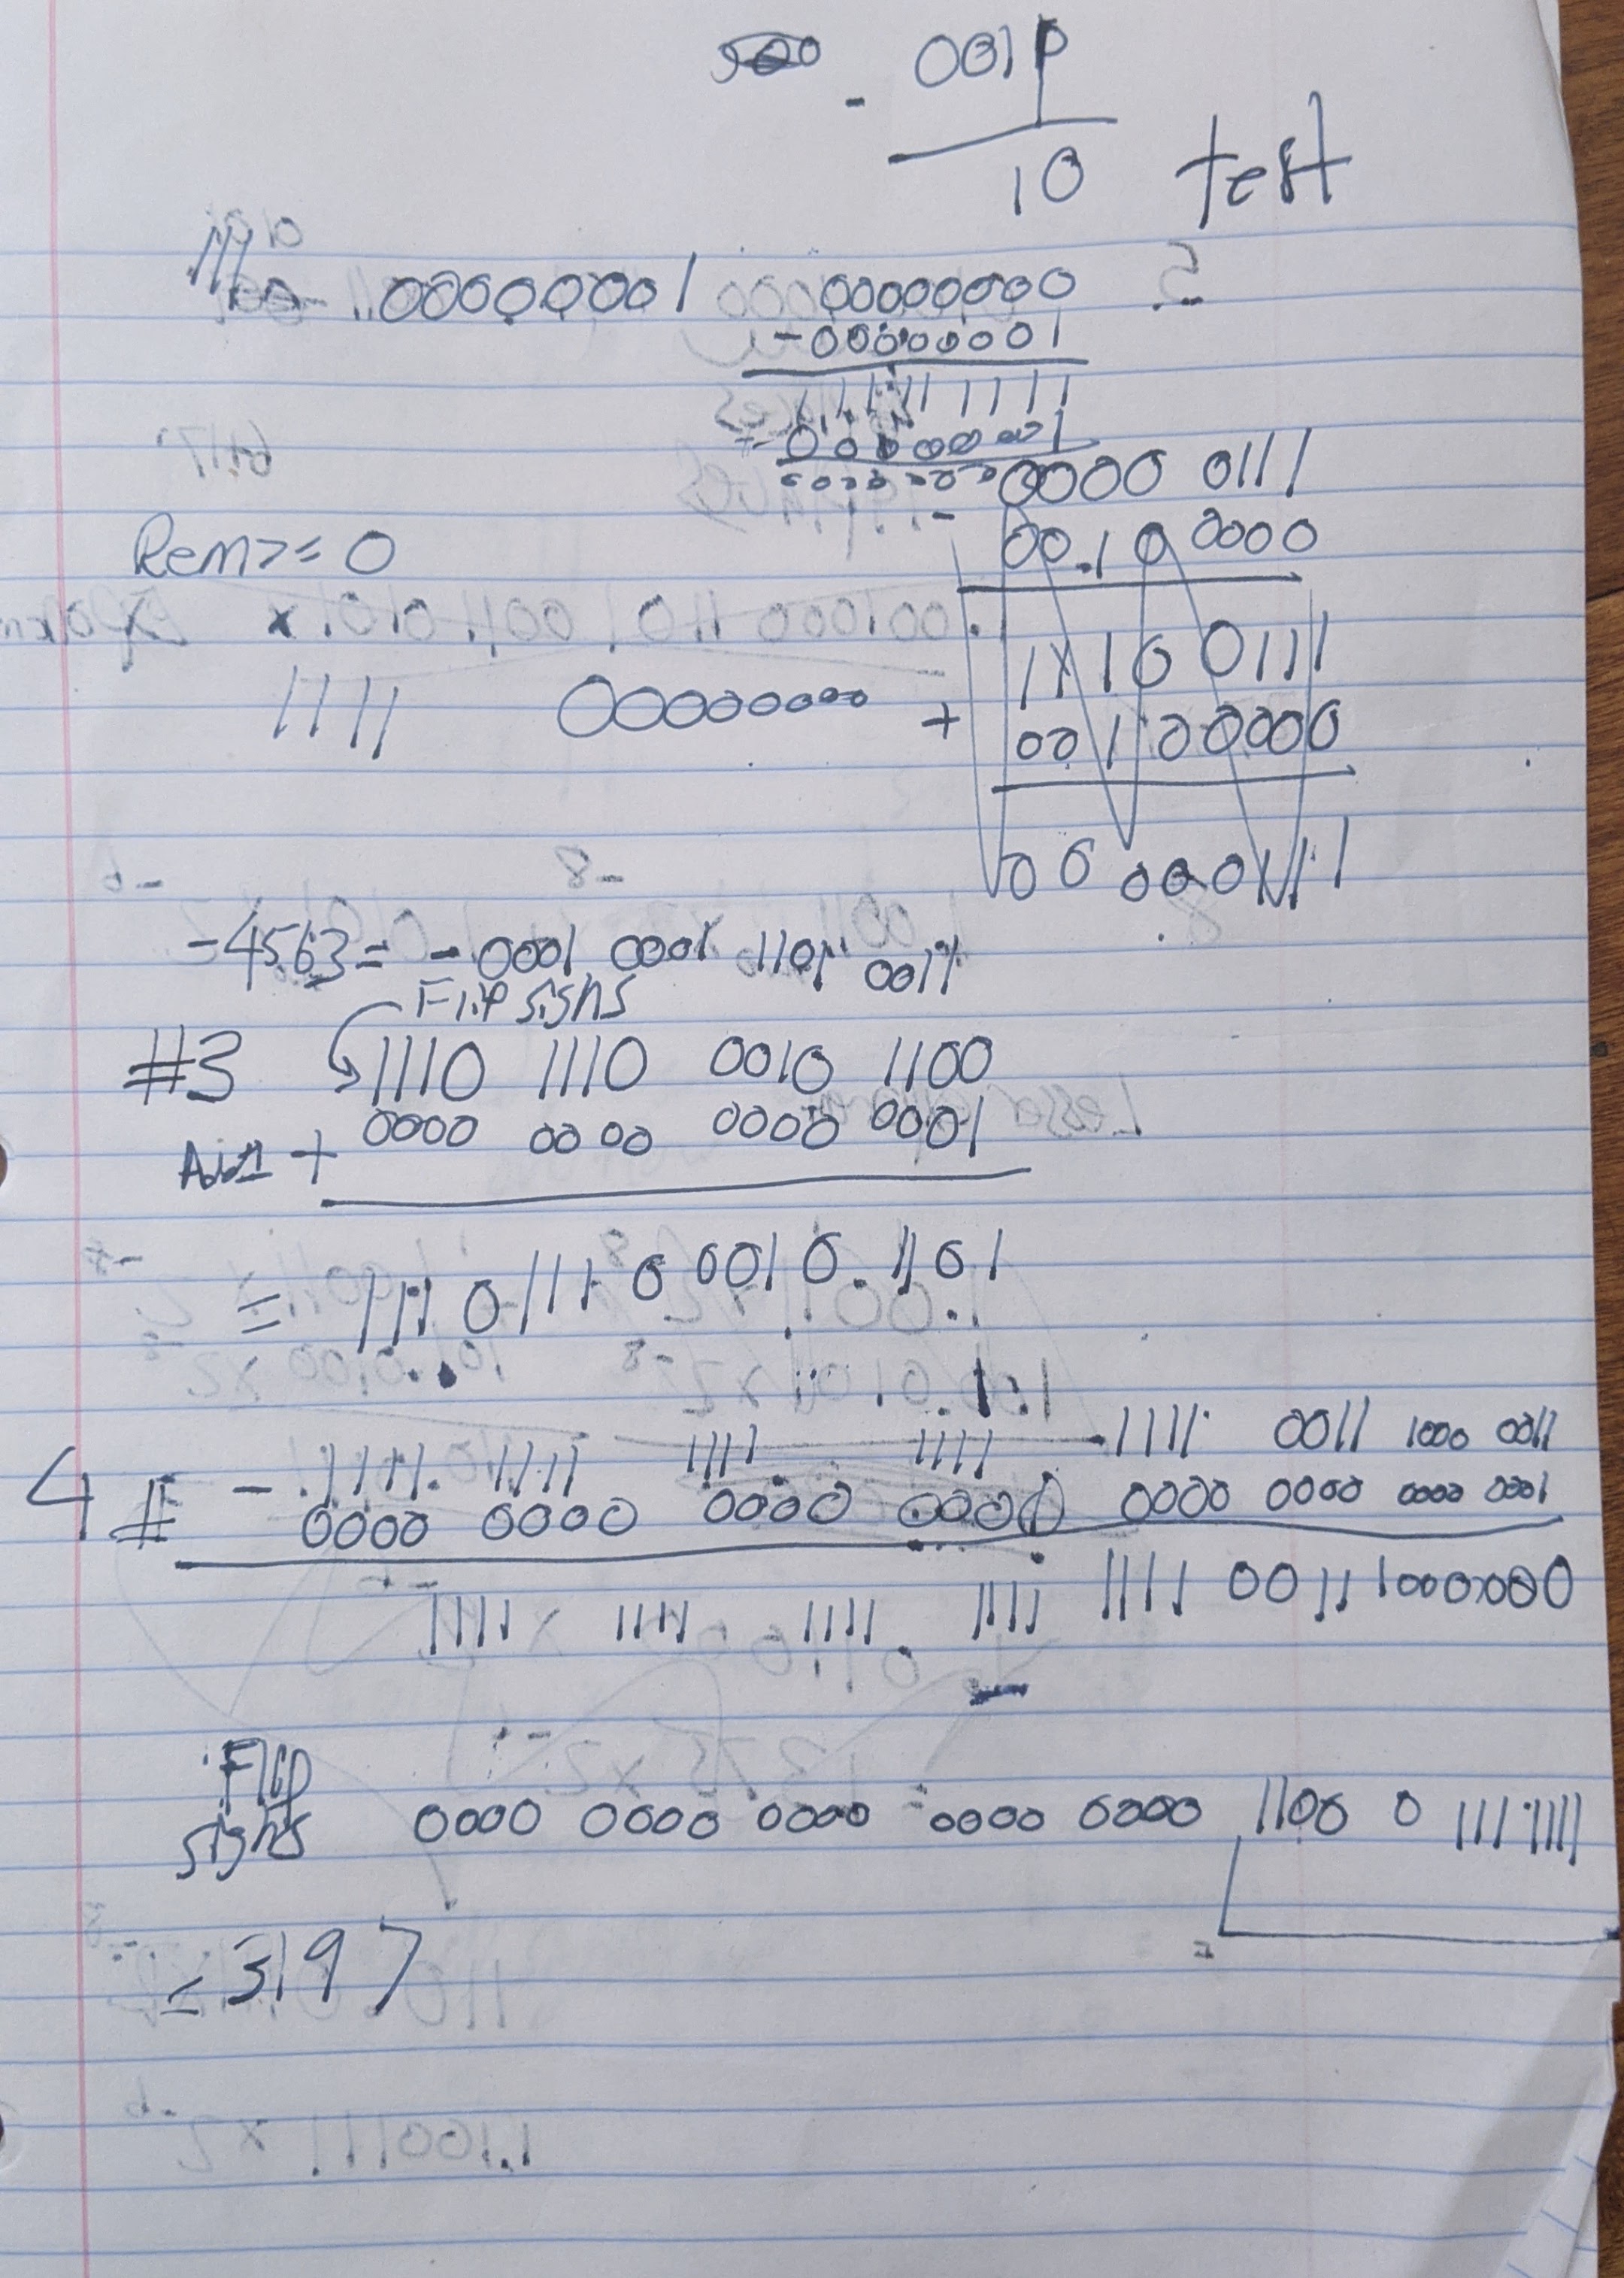 - 0010
10 test
00000001 00000000
- 00000001
11111111
00000001
0000 0111
Rem >= 0 - 0010 0000
1110 0111
1111 000000000 + 00100000
00000111
-4563 = - 0001 0001 1101 0011
Flip signs
#3 1110 1110 0010 1100
Add 1 + 0000 0000 0000 0001
= 1110 1110 0010 1101
1111 1111 1111 1111 1111 0011 1000 0011
4 # - 0000 0000 0000 0000 0000 0000 0000 0001
1111 1111 1111 1111 1111 0011 1000 000
Flip
signs 0000 0000 0000 0000 0000 1100 0 111 1111
= 3197